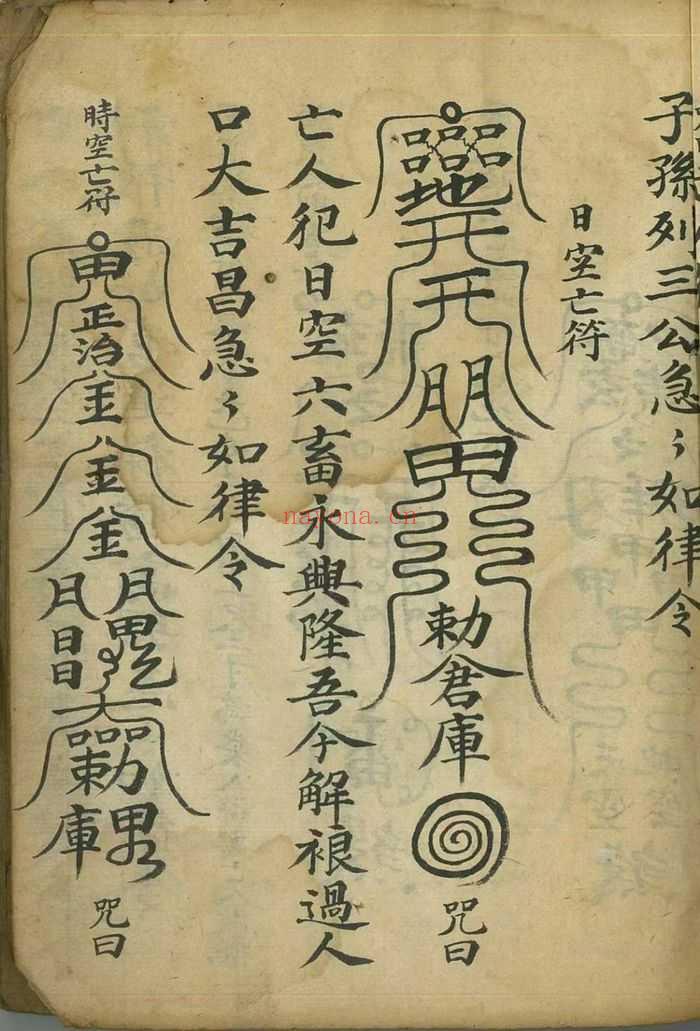 子孫列三公急〻如律令
日空亡符
地
开
开
朋
甩
勅倉庫
咒曰
亡人犯日空六畜永興隆吾今解禳過人
口大吉昌急〻如律令
時空亡符
正治
金
金
金
月月
勅
庫
咒曰
nayona.cn